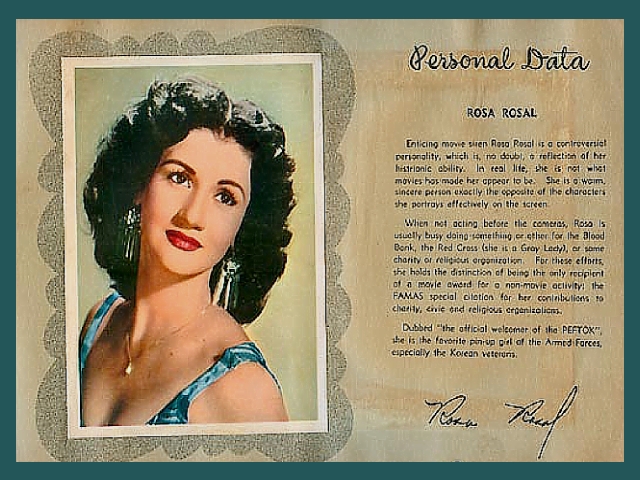 Personal Data
ROSA ROSAL
Enticing movie siren Rosa Rosal is a controversial
personality, which is, no doubt, a reflection of her
histrionic ability. In real life, she is not what
movies has made her appear to be. She is a warm,
sincere person exactly the opposite of the characters
she portrays effectively on the screen.
When not acting before the cameras, Rosa is
usually busy doing something or other for the Blood
Bank, the Red Cross (she is a Gray Lady), or some
charity or religious organization. For these efforts,
she holds the distinction of being the only recipient
of a movie award for a non-movie activity; the
FAMAS special citation for her contributions to
charity, civic and religious organizations.
Dubbed "the official welcomer of the PEFTOK",
she is the favorite pin-up girl of the Armed Forces,
especially the Korean veterans.
Rosa Rosal